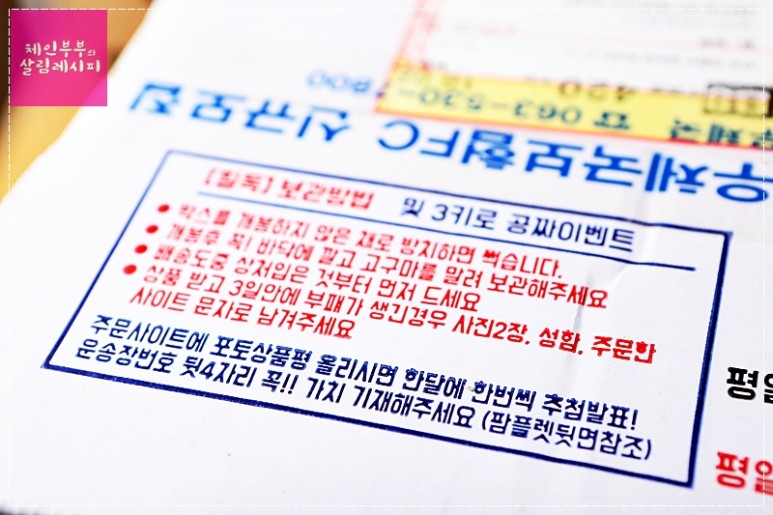 체인부부의
살림레시피
063-530-
우체국보험FC 신규모집
[필독] 보관방법 및 3키로 공짜이벤트
• 박스를 개봉하지 않은 채로 방치하면 썩습니다.
• 개봉후 꼭! 바닥에 깔고 고구마를 말려 보관해주세요
• 배송도중 상처입은 것부터 먼저 드세요
• 상품 받고 3일안에 부패가 생긴경우 사진2장, 성함, 주문한
사이트 문자로 남겨주세요
주문사이트에 포토상품평 올리시면 한달에 한번씩 추첨발표!
운송장번호 뒷4자리 꼭!! 가치 기재해주세요 (팜플렛뒷면참조)
평일
평일